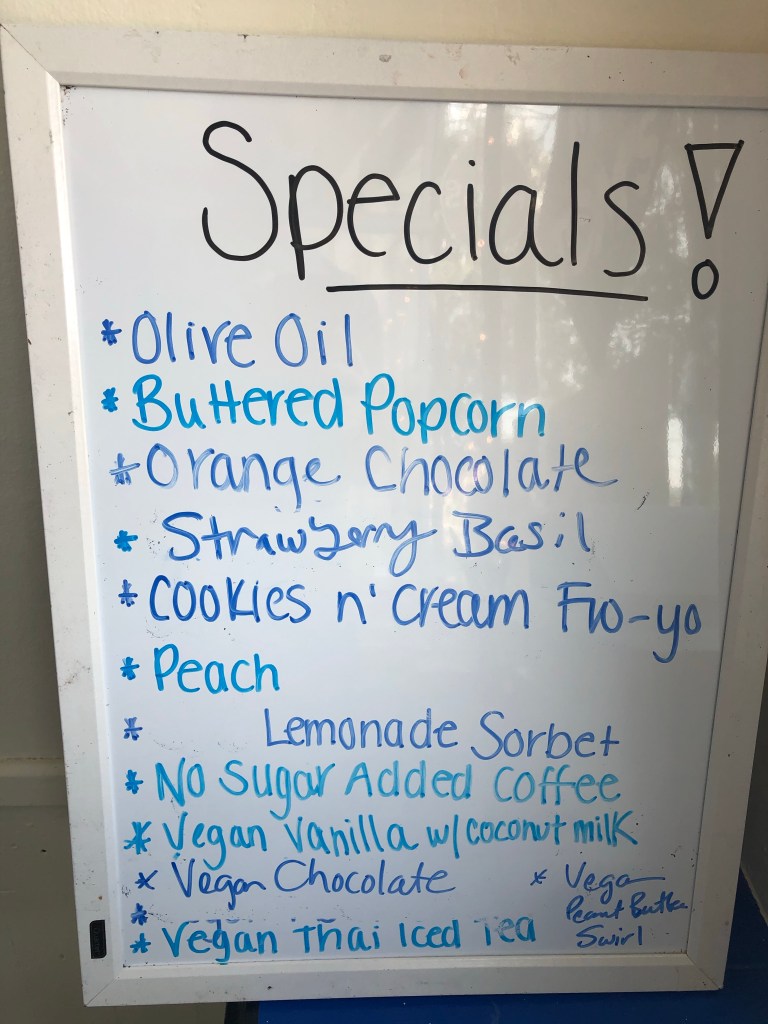 Specials!
* Olive Oil
* Buttered Popcorn
* Orange Chocolate
* Strawberry Basil
* Cookies n' Cream Fro-yo
* Peach
* Lemonade Sorbet
* No Sugar Added Coffee
* Vegan Vanilla w/coconut milk
* Vegan Chocolate
* Vegan
Peanut Butter
Swirl
*
* Vegan Thai Iced Tea